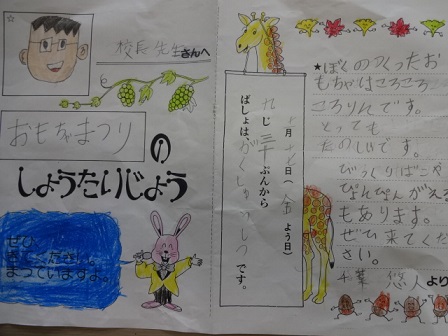 校長先生さんへ
おもちゃまつり
の
しょうたいじょう
ぜひ
きてください。
まっていますよ。
月
日(金よう日)
九じ三十ぷんから
ばしょは、がくしゅうしつです。
★ぼくのつくったお
もちゃはころころ
ころりんです。
とっても
たのしいです。
びっくりばこや
ぴょんぴょんがえる
もあります。
ぜひ来てくだ
さい。
千葉 悠人より